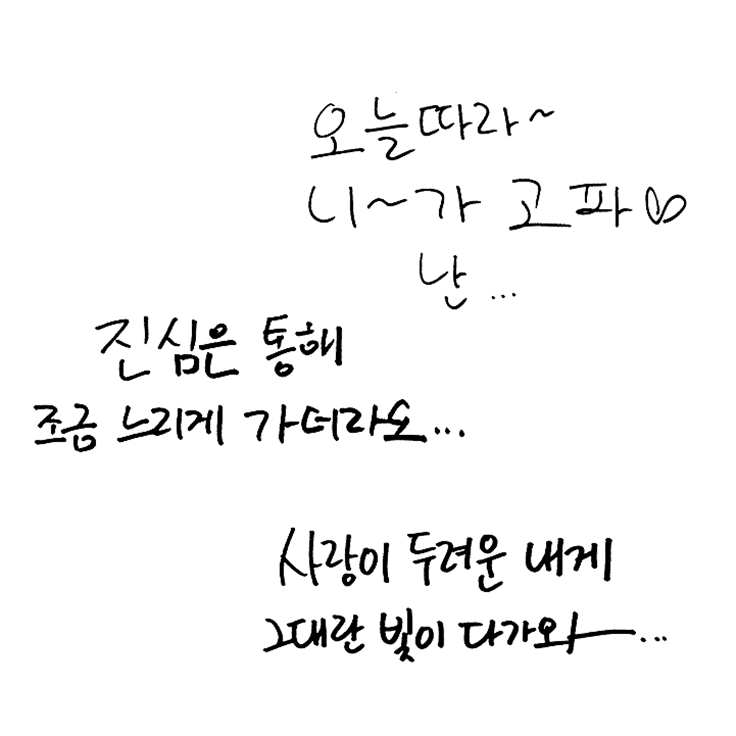 오늘따라~
니~가 고파♡
난...
진심은 통해
조금 느리게 가더라도...
사랑이 두려운 내게
그대란 빛이 다가와ㅡ...